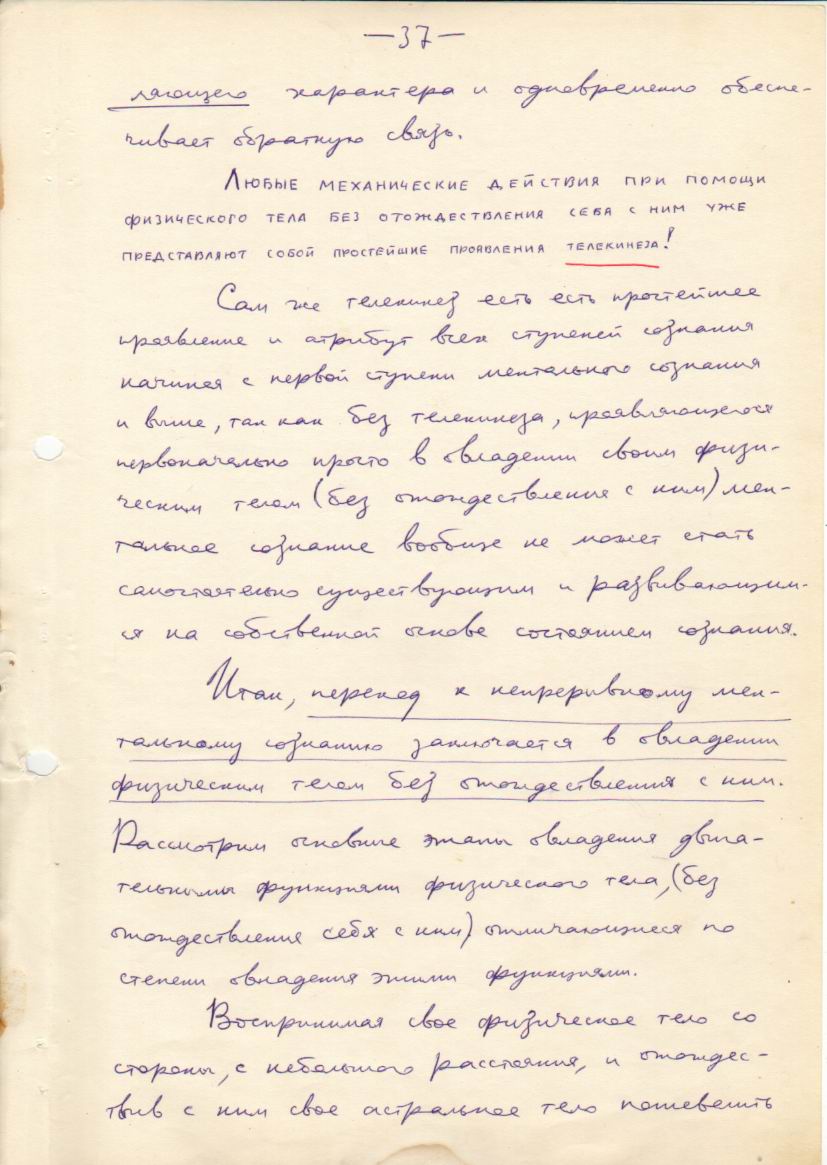 —37—
ляющего характера и одновременно обеспе-
чивает обратную связь.
Любые механические действия при помощи
физического тела без отождествления себя с ним уже
представляют собой простейшие проявления телекинеза!
Сам же телекинез есть есть простейшее
проявление и атрибут всех ступеней сознания
начиная с первой ступени ментального сознания
и выше, так как без телекинеза, проявляющегося
первоначально просто в овладении своим физи-
ческим телом (без отождествления с ним) мен-
тальное сознание вообще не может стать
самостоятельно существующим и развивающим-
ся на собственной основе состоянием сознания.
Итак, переход к непрерывному мен-
тальному сознанию заключается в овладении
физическим телом без отождествления с ним.
Рассмотрим основные этапы овладения двига-
тельными функциями физического тела, (без
отождествления себя с ним) отличающиеся по
степени овладения этими функциями.
Воспринимая свое физическое тело со
стороны, с небольшого расстояния, и отождес-
твив с ним свое астральное тело пошевелить